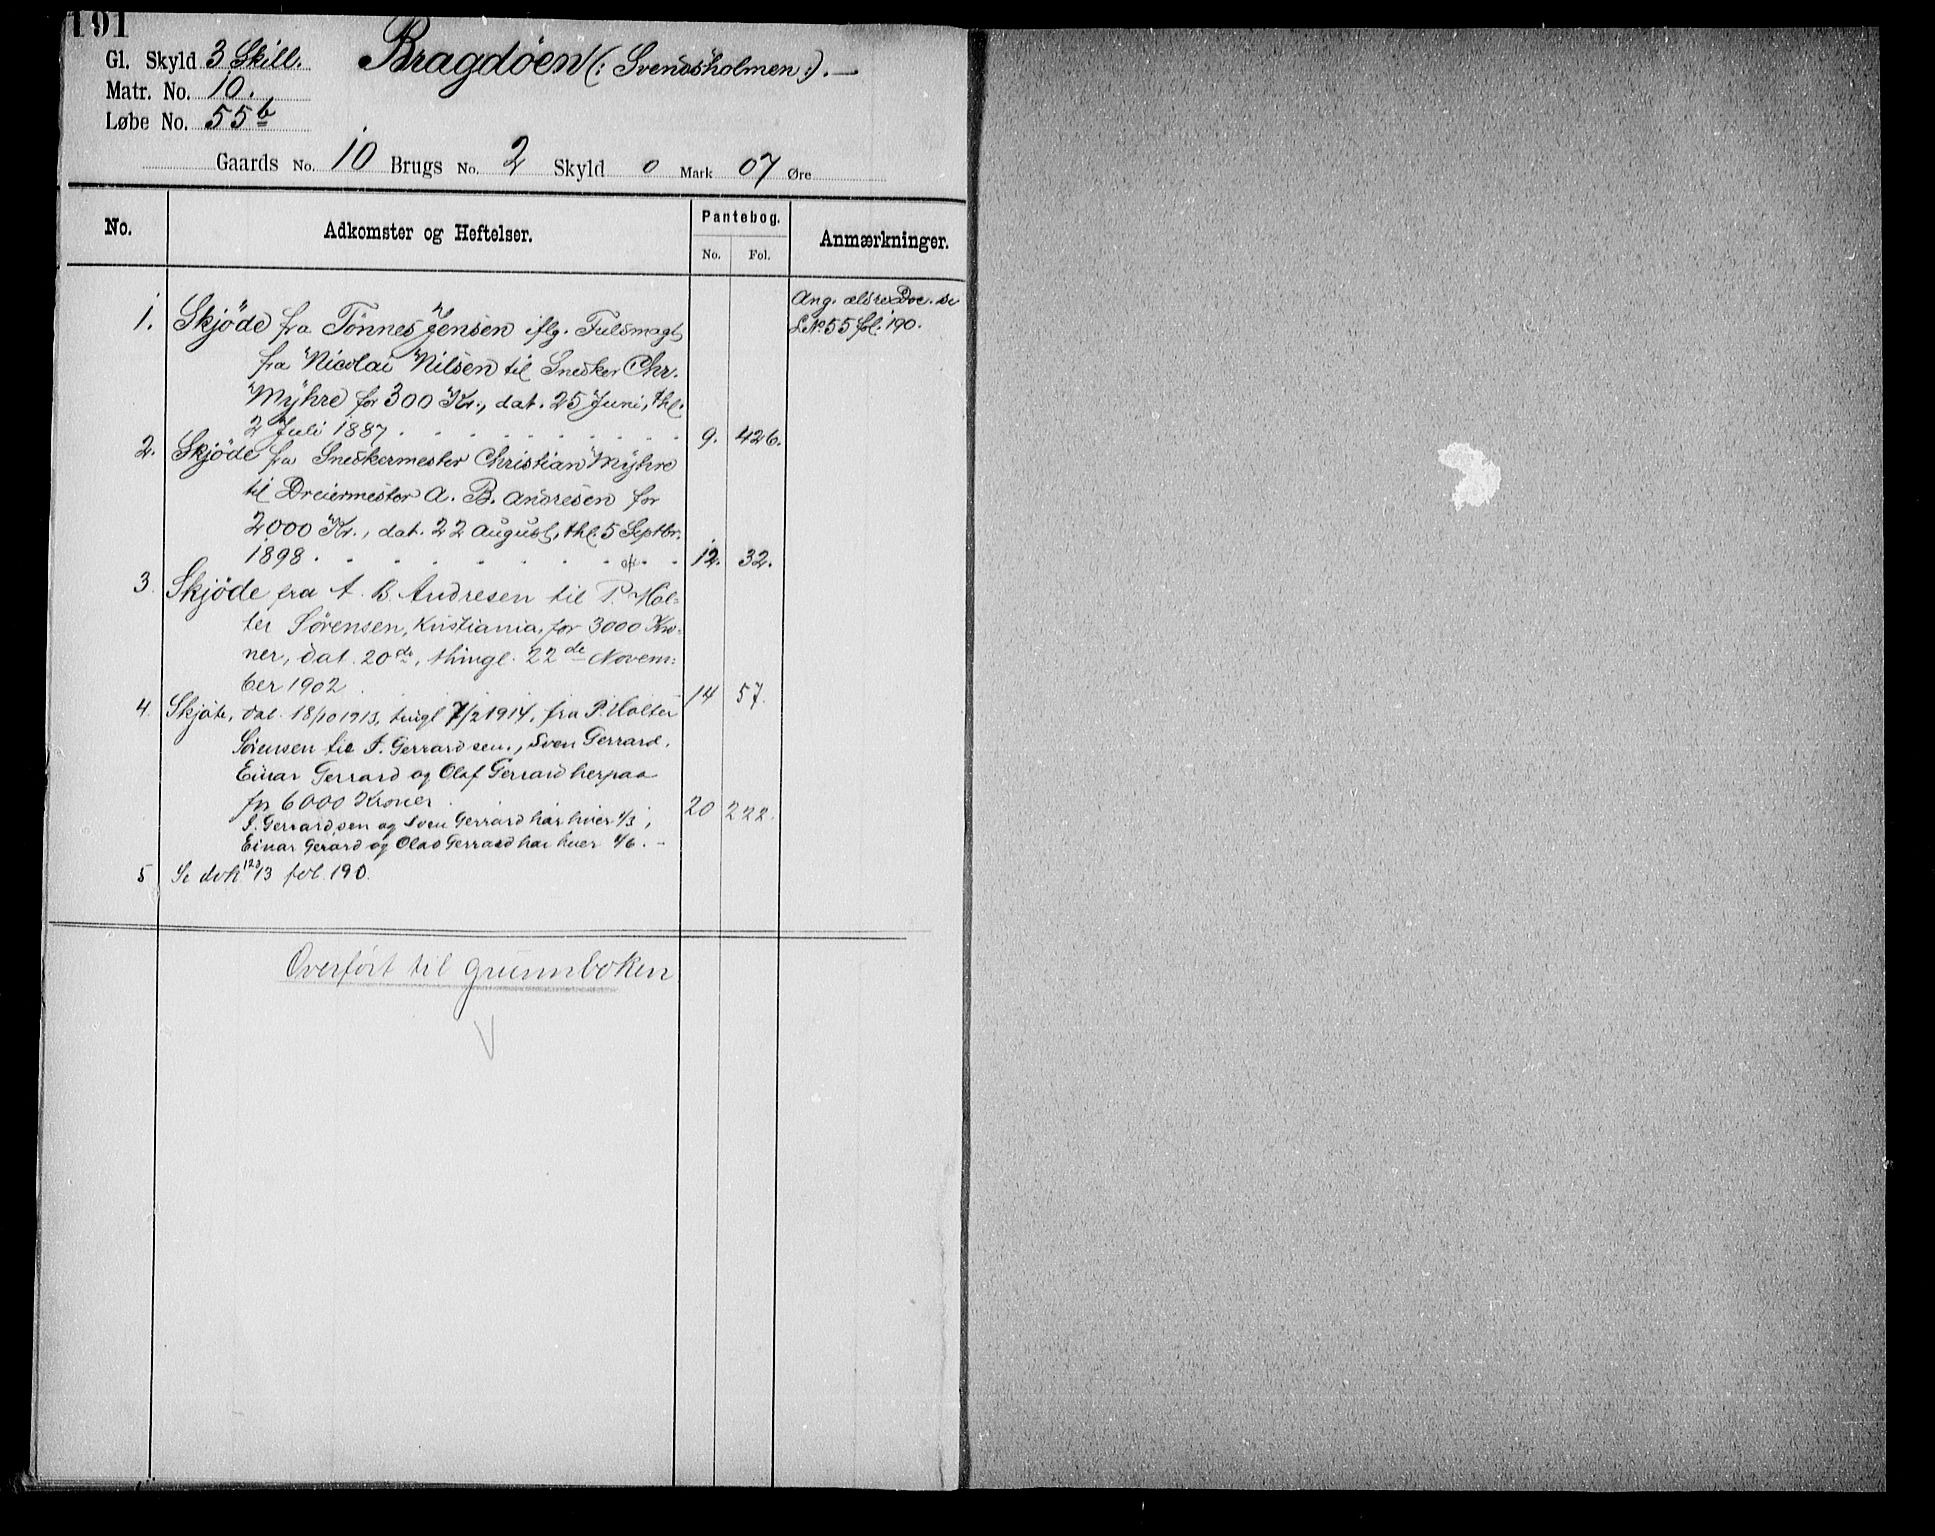 191
Gl. Skyld 3 Skill. Bragdøen (: Svendsholmen :). —
Matr. No. 10.
Løbe No. 55 b
Gaards No. 10 Brugs No. 2 Skyld 0 Mark 07 Øre
No. Adkomster og Heftelser. Pantebog. Anmærkninger.
No. Fol.
Ang. ældre Doc. se
L.No 55 fol. 190.
1. Skjöde fra Tönnes Jensen iflg. Fuldmagt
fra Nicolai Nilsen til Snedker Chr.
Myhre for 300 Kr., dat. 25 Juni, thl.
2 Juli 1887 9. 426.
2. Skjöde fra Snedkermester Christian Myhre
til Dreiermester A. B. Andresen for
2000 Kr., dat. 22 August, thl. 5 Septbr.
1898 12. 32.
3 Skjöde fra A. B. Andresen til P. Hol-
ter Sörensen, Kristiania, for 3000 Kro-
ner, dat. 20de, thingl. 22de Novem-
ber 1902 14 57.
4. Skjøte, dat. 18/10 1913, tingl 7/2 1914, fra P. Holter
Sørensen til J. Gerrard sen., Sven Gerrard,
Einar Gerrard og Olaf Gerrard herpaa
for 6000 Kroner 20 222.
J. Gerrard sen og Sven Gerrard har hver 1/3,
Einar Gerard og Olav Gerrard har hver 1/6. -
5 Se dok 13 fol. 190.
Overført til grunnboken